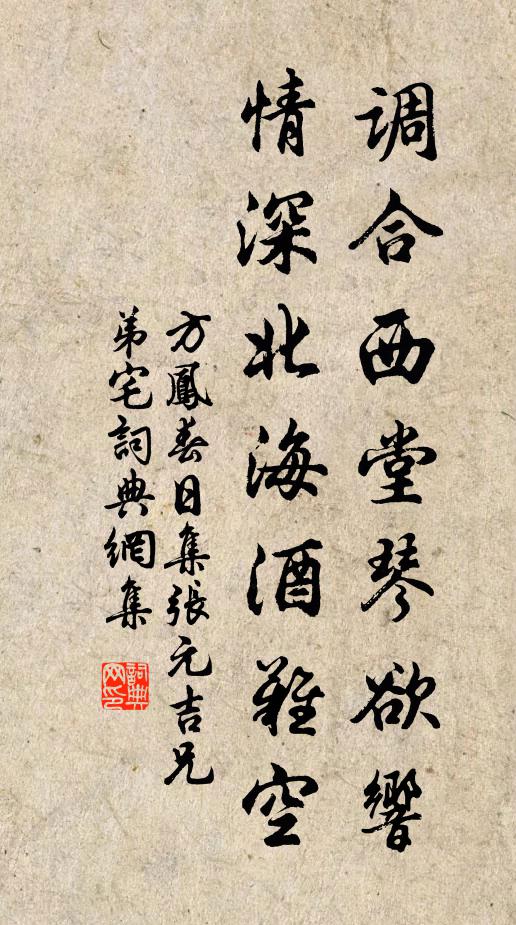 調合西堂琴欲響
情深北海酒難空
方鳳春日集張元吉兄
弟宅詞典網集
詞典
网印